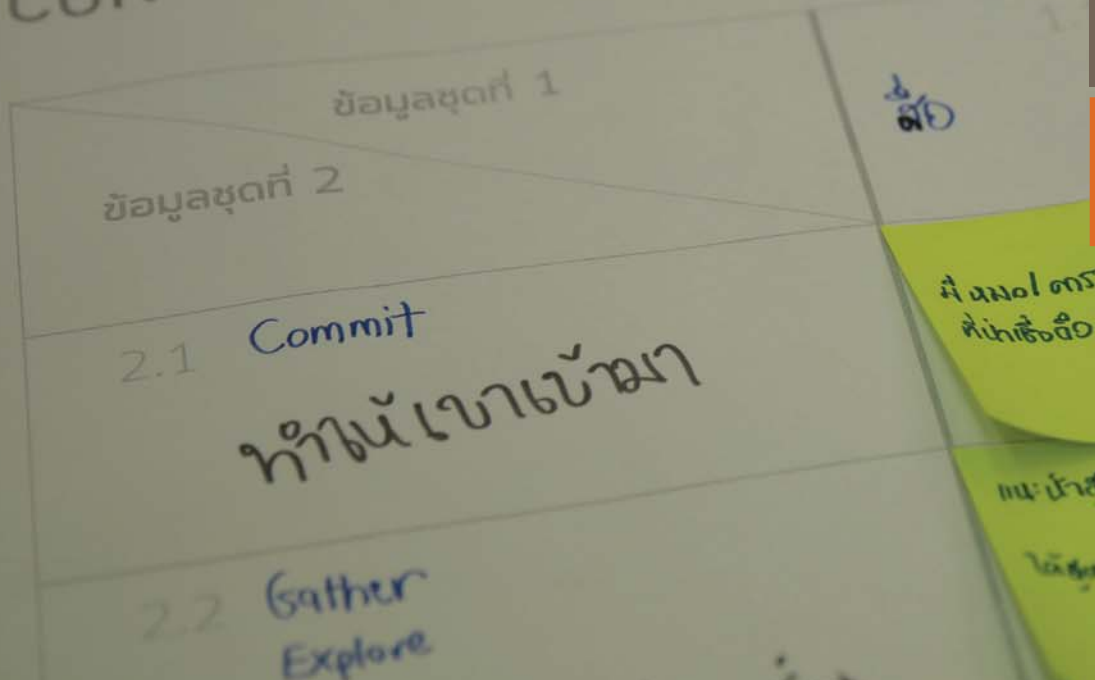 ข้อมูลชุดที่ 1
มือ
ข้อมูลชุดที่ 2
2.1 Commit
ทำให้เขาเข้ามา
มีหมอ/
ที่น่าเชื่อถือ
2.2 Gather
Explore